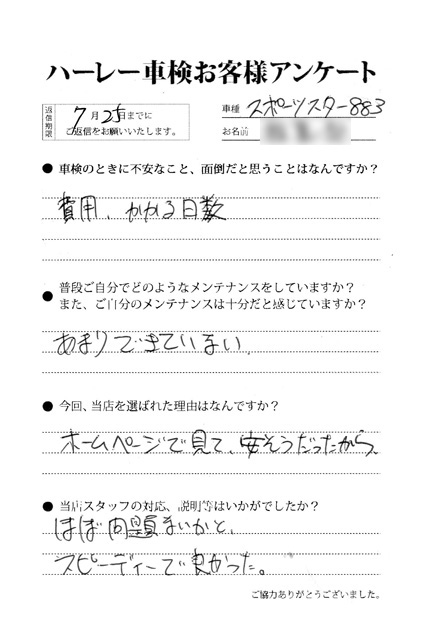 ハーレー車検お客様アンケート
返信期限 7月25日までに
ご返信をお願いいたします。
車種 スポーツスター883
お名前
● 車検のときに不安なこと、面倒だと思うことはなんですか?
費用、かかる日数
● 普段ご自分でどのようなメンテナンスをしていますか?
また、ご自分のメンテナンスは十分だと感じていますか?
あまりできていない。
● 今回、当店を選ばれた理由はなんですか?
ホームページで見て、安そうだったから、
● 当店スタッフの対応、説明等はいかがでしたか?
ほぼ問題ないかと、
スピーディーで良かった。
ご協力ありがとうございました。